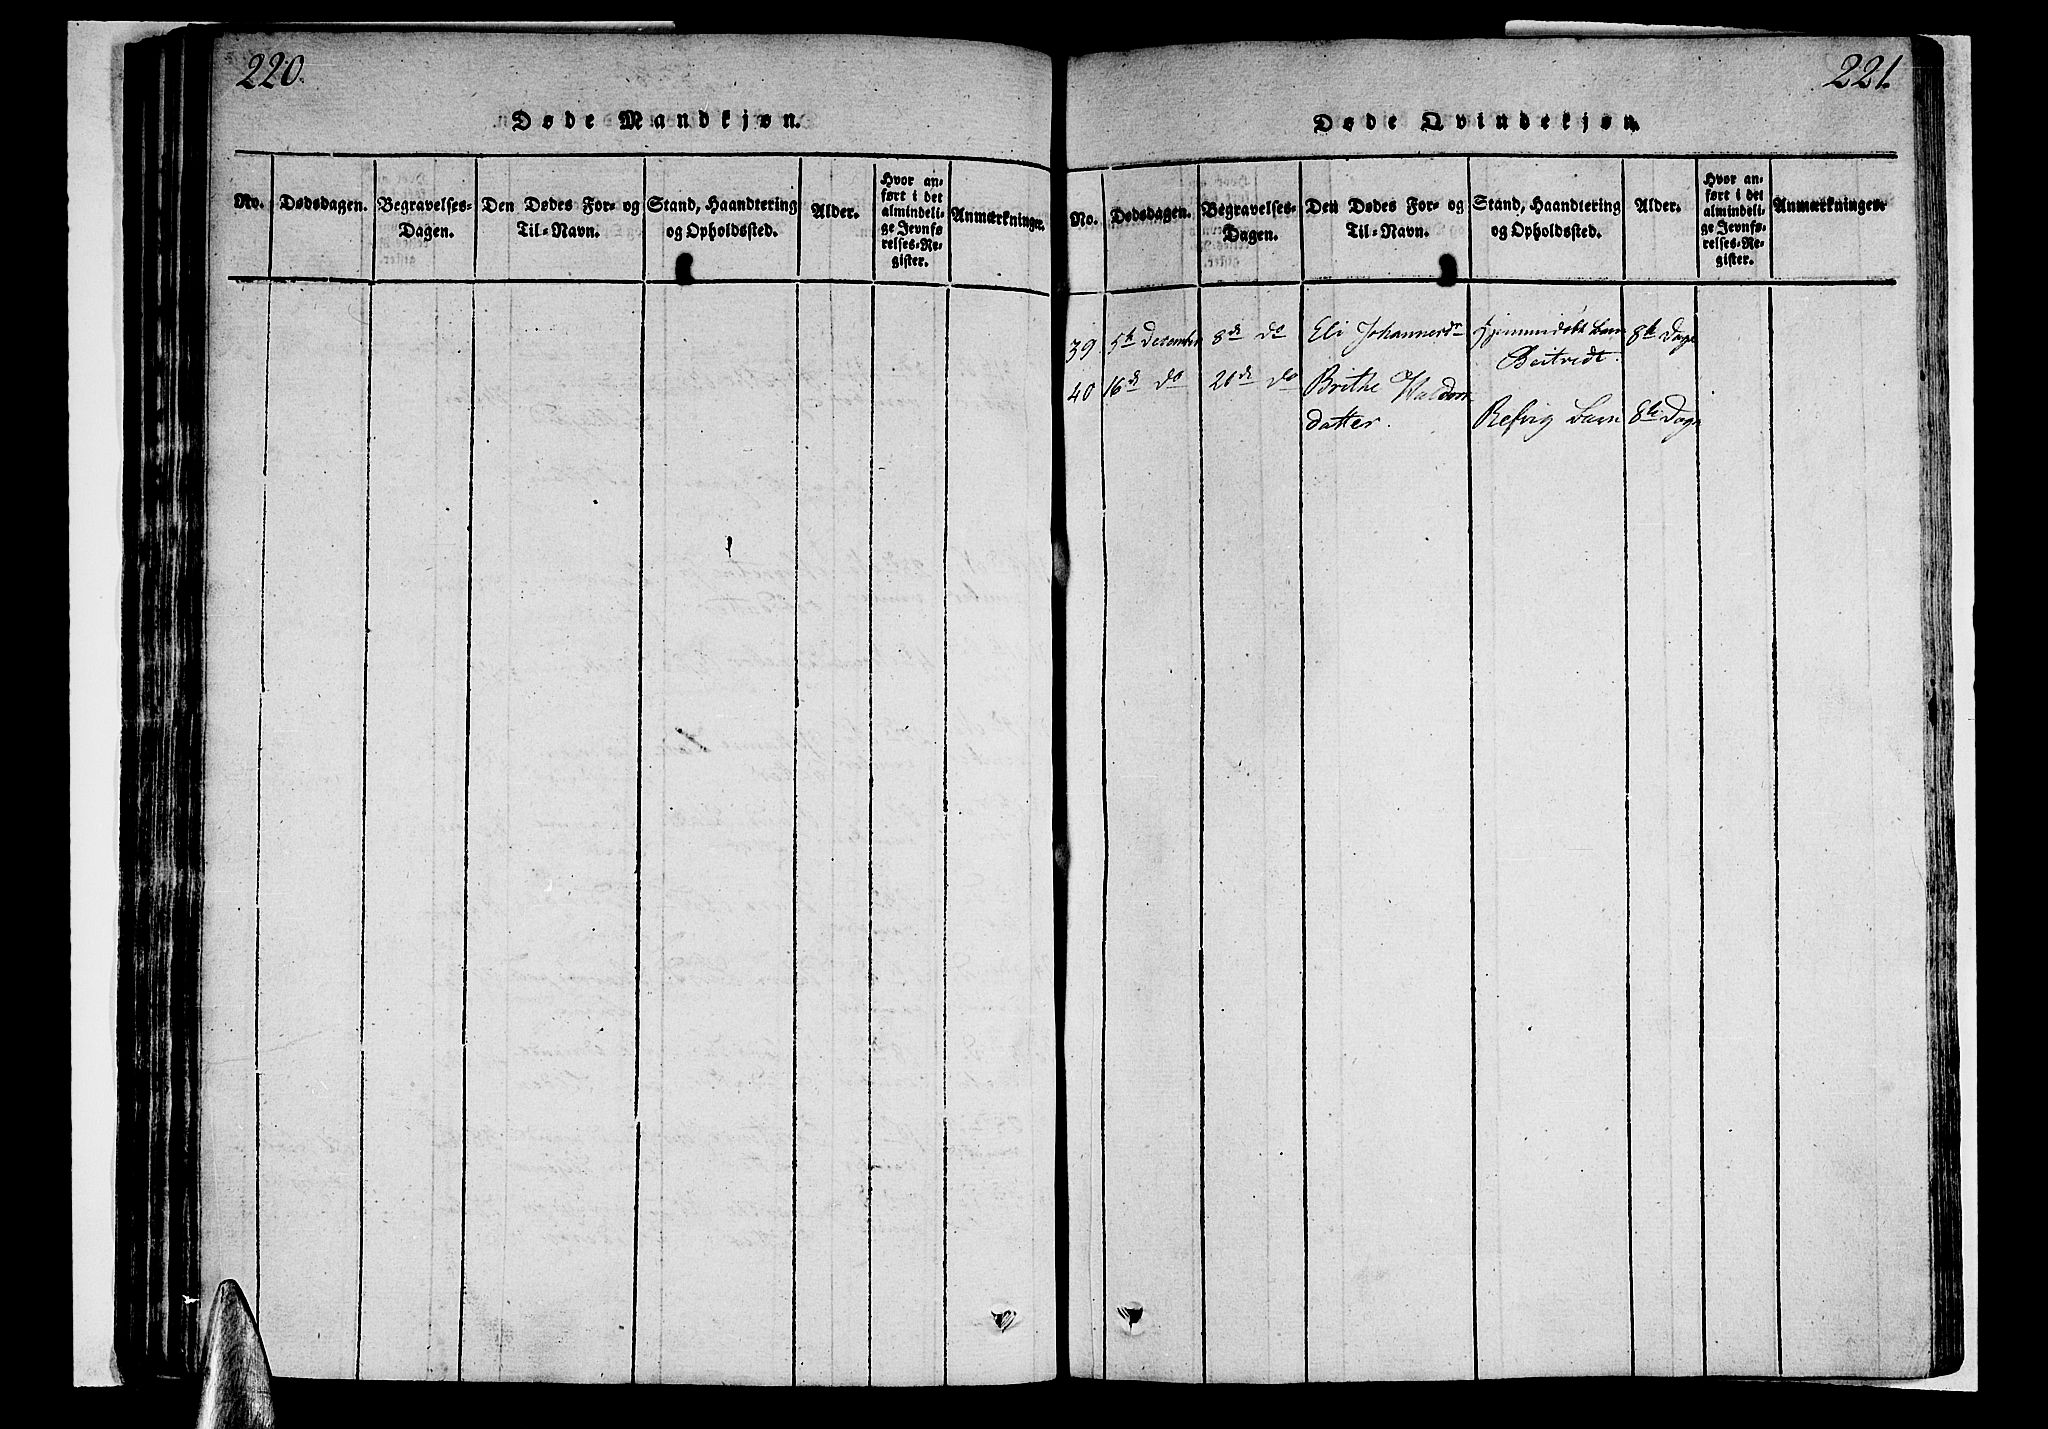 220.
Døde Mandkjøn.
No.
Dødsdagen.
Begravelses-
Dagen.
Den Dødes For- og
Til-Navn.
Stand, Haandtering
og Opholdssted.
Alder.
Hvor an-
ført i det
almindeli-
ge Jevnfø-
relses-Re-
gister.
Anmærkninger.
221.
Døde Qvindekjøn.
No.
Dødsdagen.
Begravelses-
Dagen.
Den Dødes For- og
Til-Navn.
Stand, Haandtering
og Opholdssted.
Alder.
Hvor an-
ført i det
almindeli-
ge Jevnfø-
relses-Re-
gister.
Anmærkninger.
39 5te December 8de do Eli Johannesdr Barn 8te Dage
40 16de do 26de do Brithe
datter. Refvig Barn 8te Dage